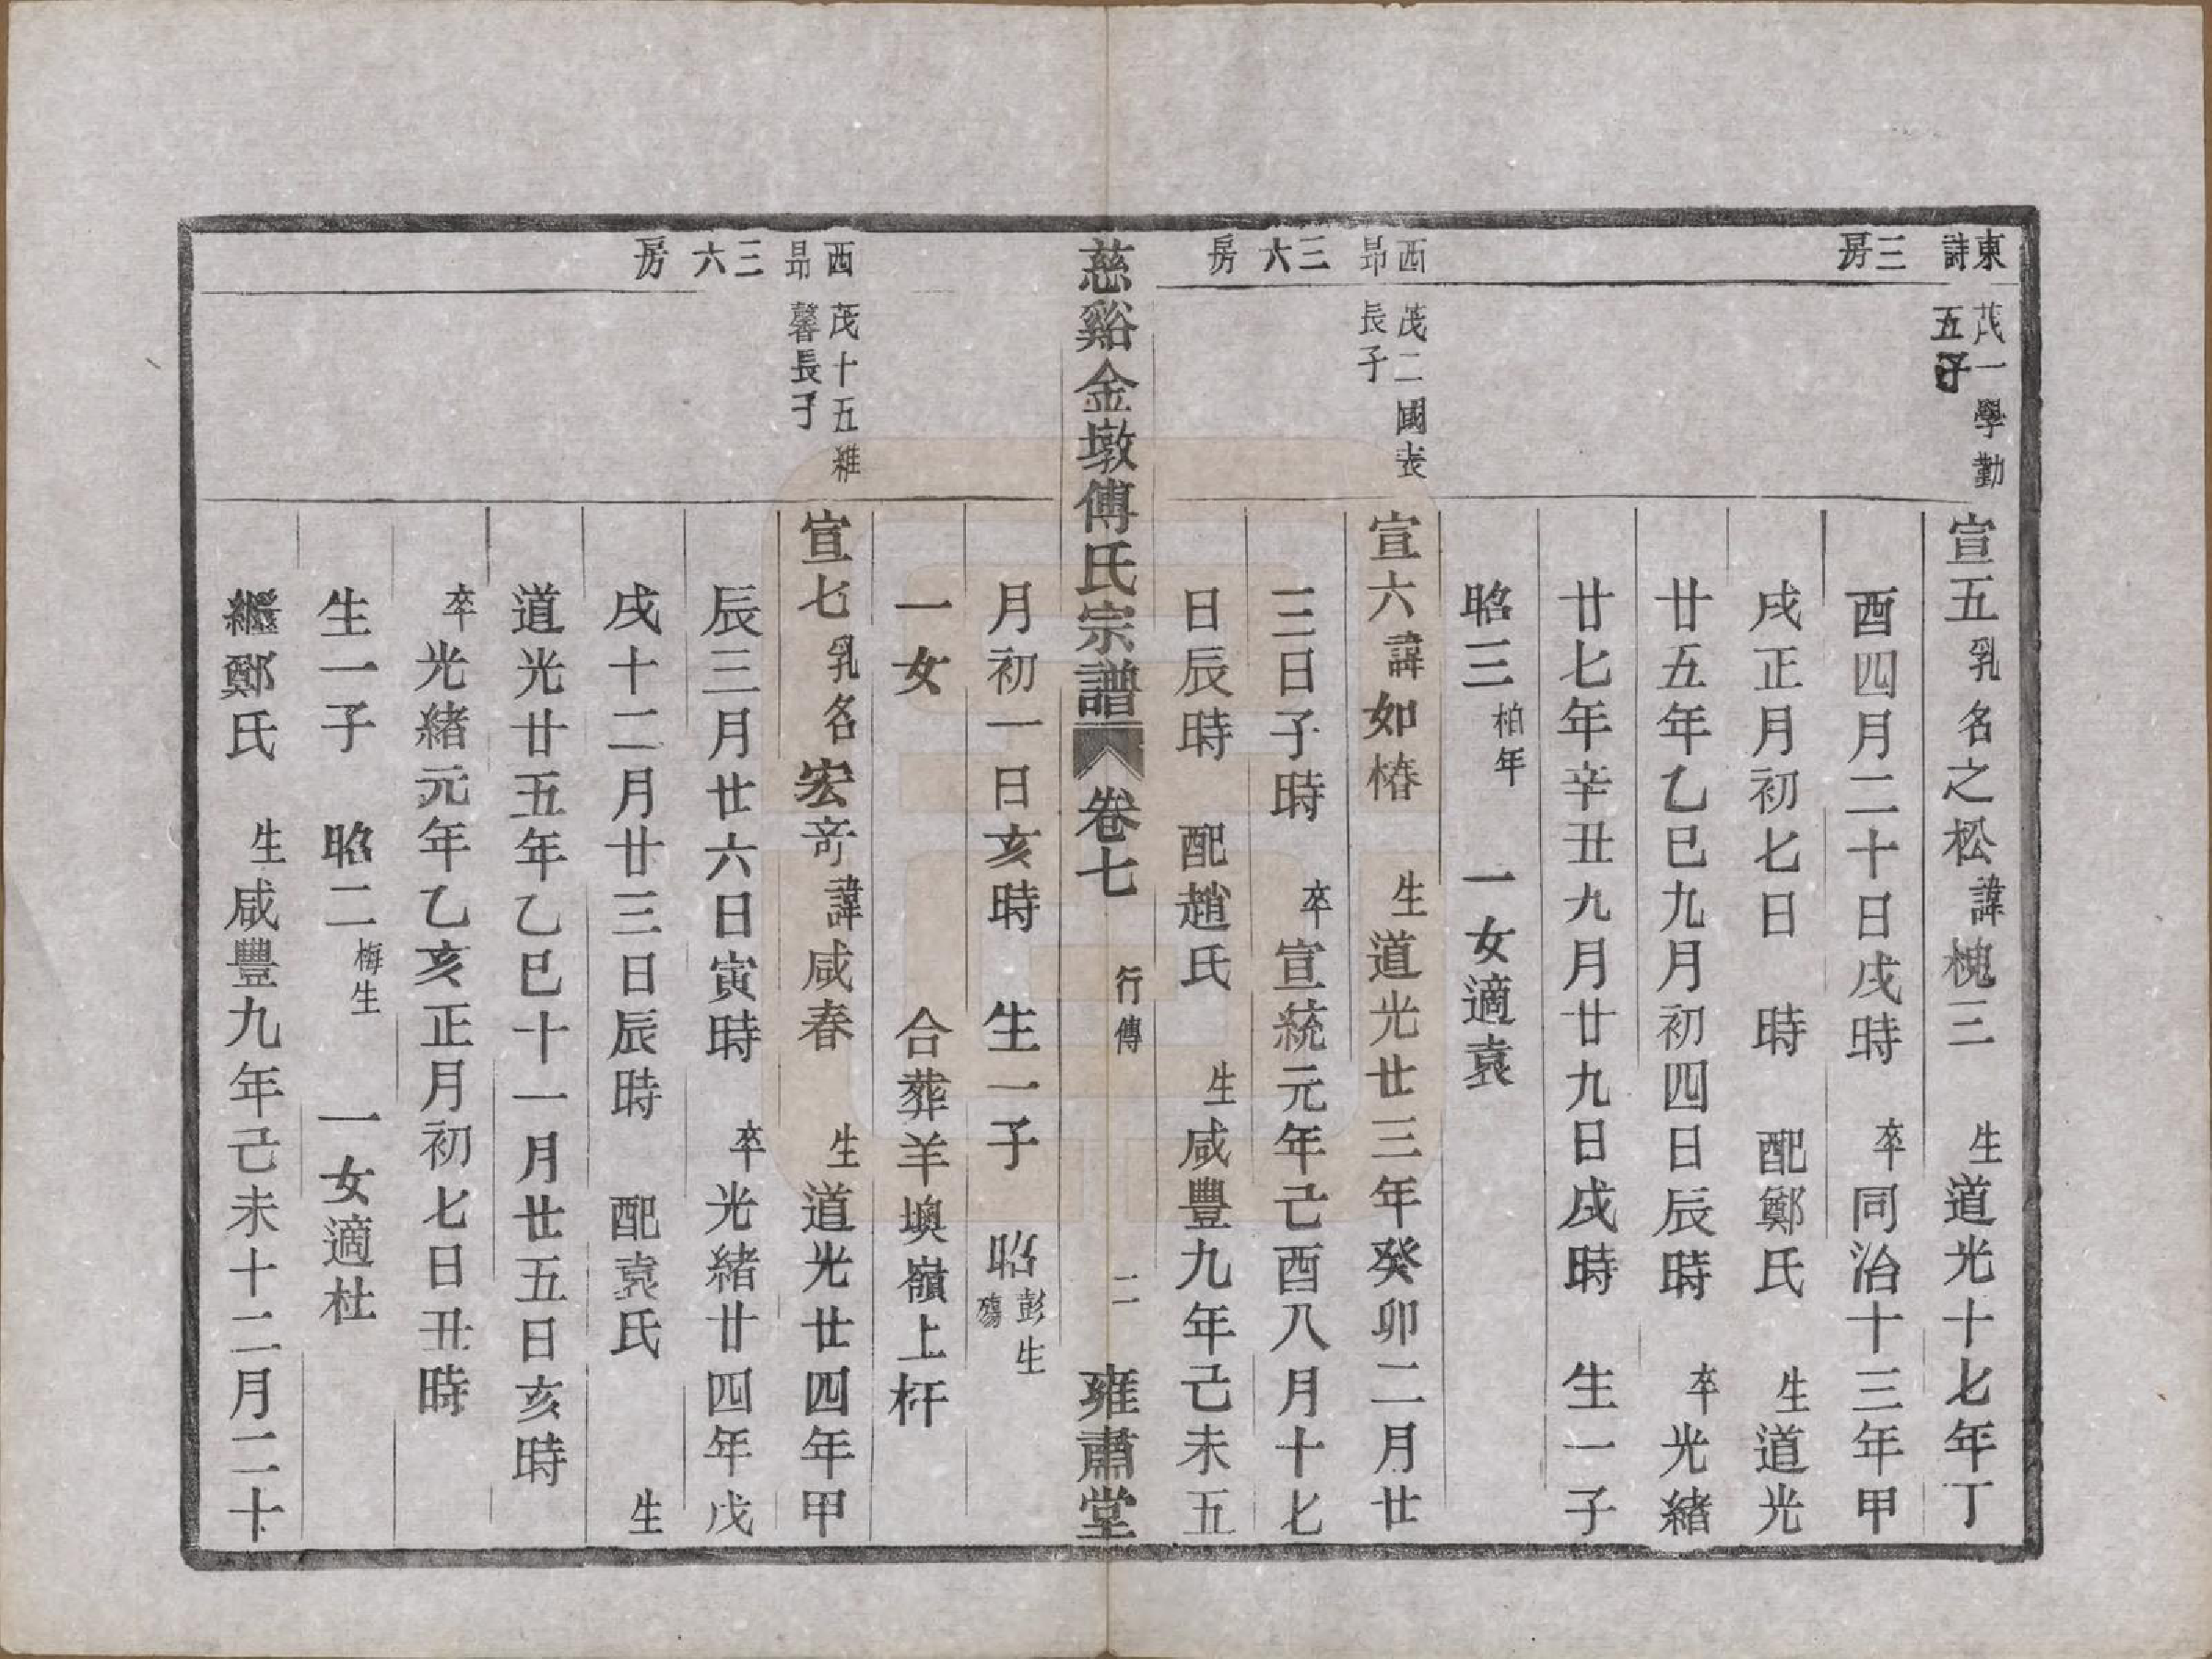 東詩
三房
茂一學勤
五子
宣五乳名之松諱槐三　生道光十七年丁
酉四月二十日戌時　卒同治十三年甲
戌正月初七日　時　配鄭氏　生道光
廿五年乙巳九月初四日辰時　卒光緒
廿七年辛丑九月廿九日戌時　生一子
昭三柏年　一女適袁
西昻
三六房
茂二國表
長子
宣六諱如椿　生道光廿三年癸卯二月廿
三日子時　卒宣統元年己酉八月十七
日辰時　配趙氏　生咸豐九年己未五
慈谿金墩傅氏宗譜　卷七　行傳　二　雍肅堂
月初一日亥時　生一子　昭彭生殤
一女　合葬羊塽嶺上杆
西昻
三六房
茂十五維
馨長子
宣七乳名宏奇諱咸春　生道光廿四年甲
辰三月廿六日寅時　卒光緒廿四年戊
戌十二月廿三日辰時　配袁氏　生
道光廿五年乙巳十一月廿五日亥時
卒光緒元年乙亥正月初七日丑時
生一子　昭二梅生　一女適杜
繼鄭氏　生咸豐九年己未十二月二十